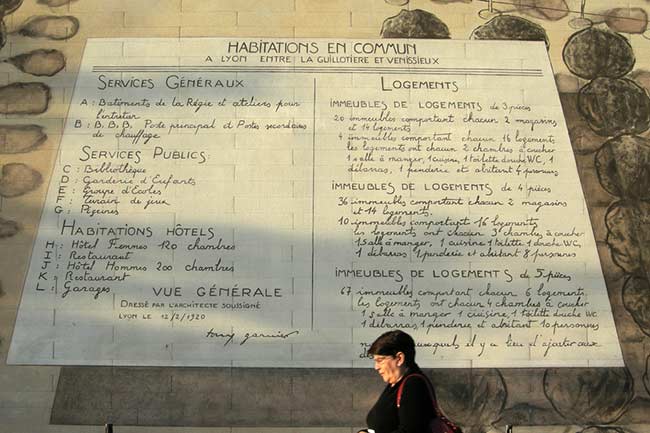 HABITATIONS EN COMMUN
A LYON ENTRE LA GUILLOTIERE ET VENISSIEUX
SERVICES GÉNÉRAUX
A : Batiments de la Régie et ateliers pour
l'entretien
B : B, B, B, Poste principal et Postes secondaires
de chauffage
SERVICES PUBLICS
C : Bibliothèque
D : Garderie d'Enfants
E : Groupe d'Ecoles
F : Terrain de jeux
G : Piscines
HABITATIONS HÔTELS
H : Hôtel Femmes 120 chambres
I : Restaurant
J : Hôtel Hommes 200 chambres
K : Restaurant
L : Garages
VUE GÉNÉRALE
DRESSÉ PAR L'ARCHITECTE SOUSSIGNÉ
LYON LE 12/2/1920
tony garnier
LOGEMENTS
IMMEUBLES DE LOGEMENTS de 3 pièces
20 immeubles comportant chacun 2 magasins
et 14 logements
4 immeubles comportant chacun 16 logements
les logements ont chacun 2 chambres à coucher
1 salle à manger, 1 cuisine, 1 toilette douche WC, 1
débarras, 1 penderie et abritent 6 personnes
IMMEUBLES DE LOGEMENTS de 4 pièces
36 immeubles comportant chacun 2 magasins
et 14 logements.
10 immeubles comportant 16 logements
les logements ont chacun 3 chambres à coucher
1 salle à manger, 1 cuisine 1 toilette 1 douche WC,
1 débarras 1 penderie et abritent 8 personnes
IMMEUBLES DE LOGEMENTS de 5 pièces
67 immeubles comportant chacun 6 logements
les logements ont chacun 4 chambres à coucher
1 salle à manger 1 cuisine, 1 toilette douche WC
1 débarras, 1 penderie et abritent 10 personnes
auxquels il y a lieu d'ajouter aux